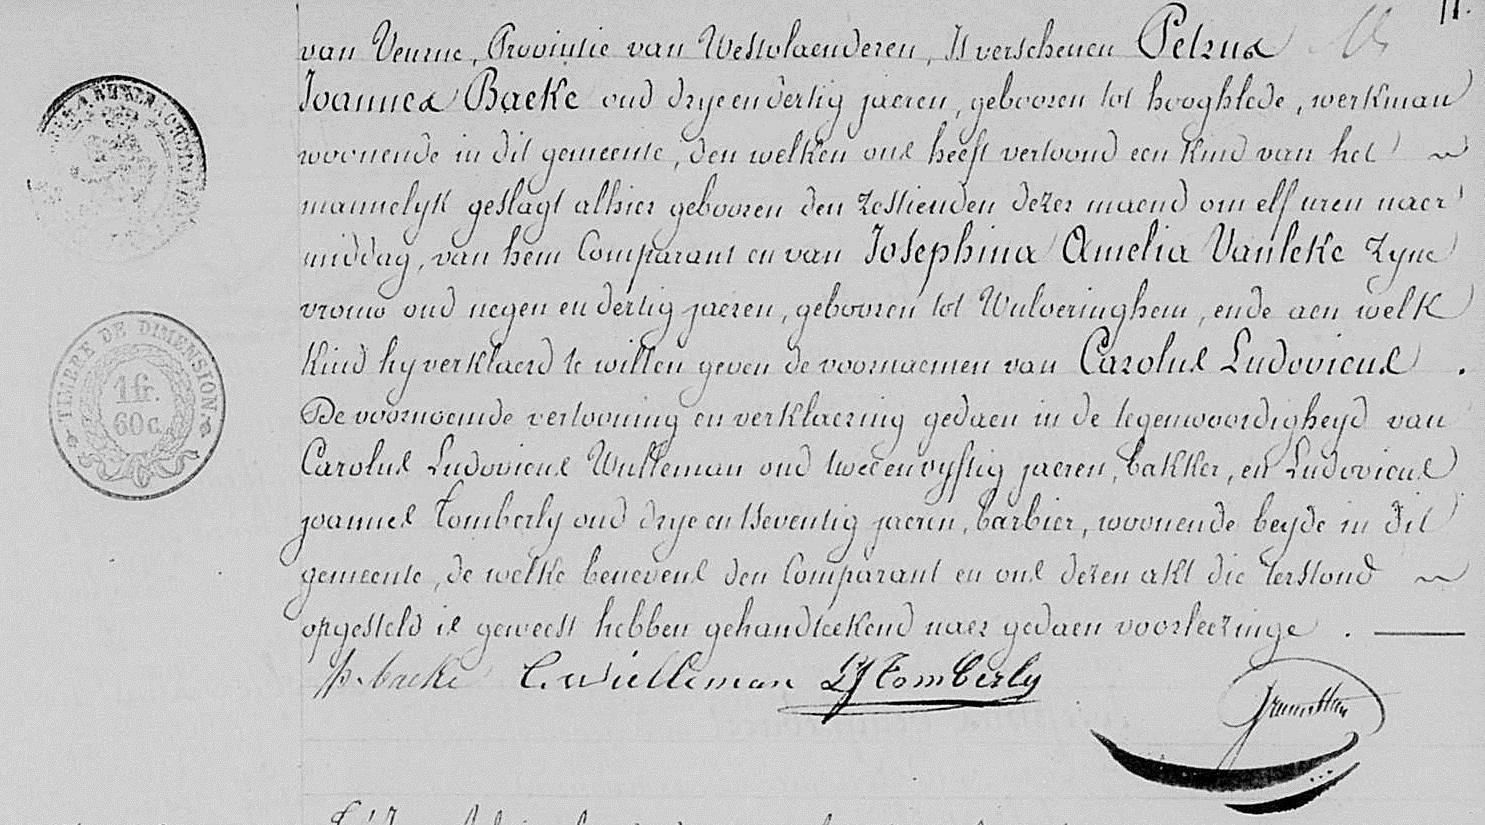 van Veurne, Provintie van Westvlaenderen, Is verschenen Petrus
Joannes Baeke oud drye en dertig jaeren, gebooren tot hooghlede, werkman
woonende in dit gemeente, den welken ons heeft vertoond een kind van het
mannelyk geslagt alhier gebooren den zestienden dezer maend om elf uren naer
middag, van hem Comparant en van Josephina Amelia Vanleke zyne
vrouw oud negen en dertig jaeren, gebooren tot Wulveringhem, ende aen welk
kind hy verklaerd te willen geven de voornaemen van Carolus Ludovicus.
De voornoemde vertooning en verklaering gedaen in de tegenwoordigheyd van
Carolus Ludovicus Wulleman oud twee en vyftig jaeren, bakker, en Ludovicus
joannes Tomberly oud drye en tseventig jaeren, barbier, woonende beyde in dit
gemeente, de welke benevens den Comparant en ons dezen akt die terstond
opgesteld is geweest hebben gehandteekend naer gedaen voorleezinge.
p. baeke C. Wulleman LJ Tomberly
TIMBRE DE DIMENSION
1 fr.
60 c.